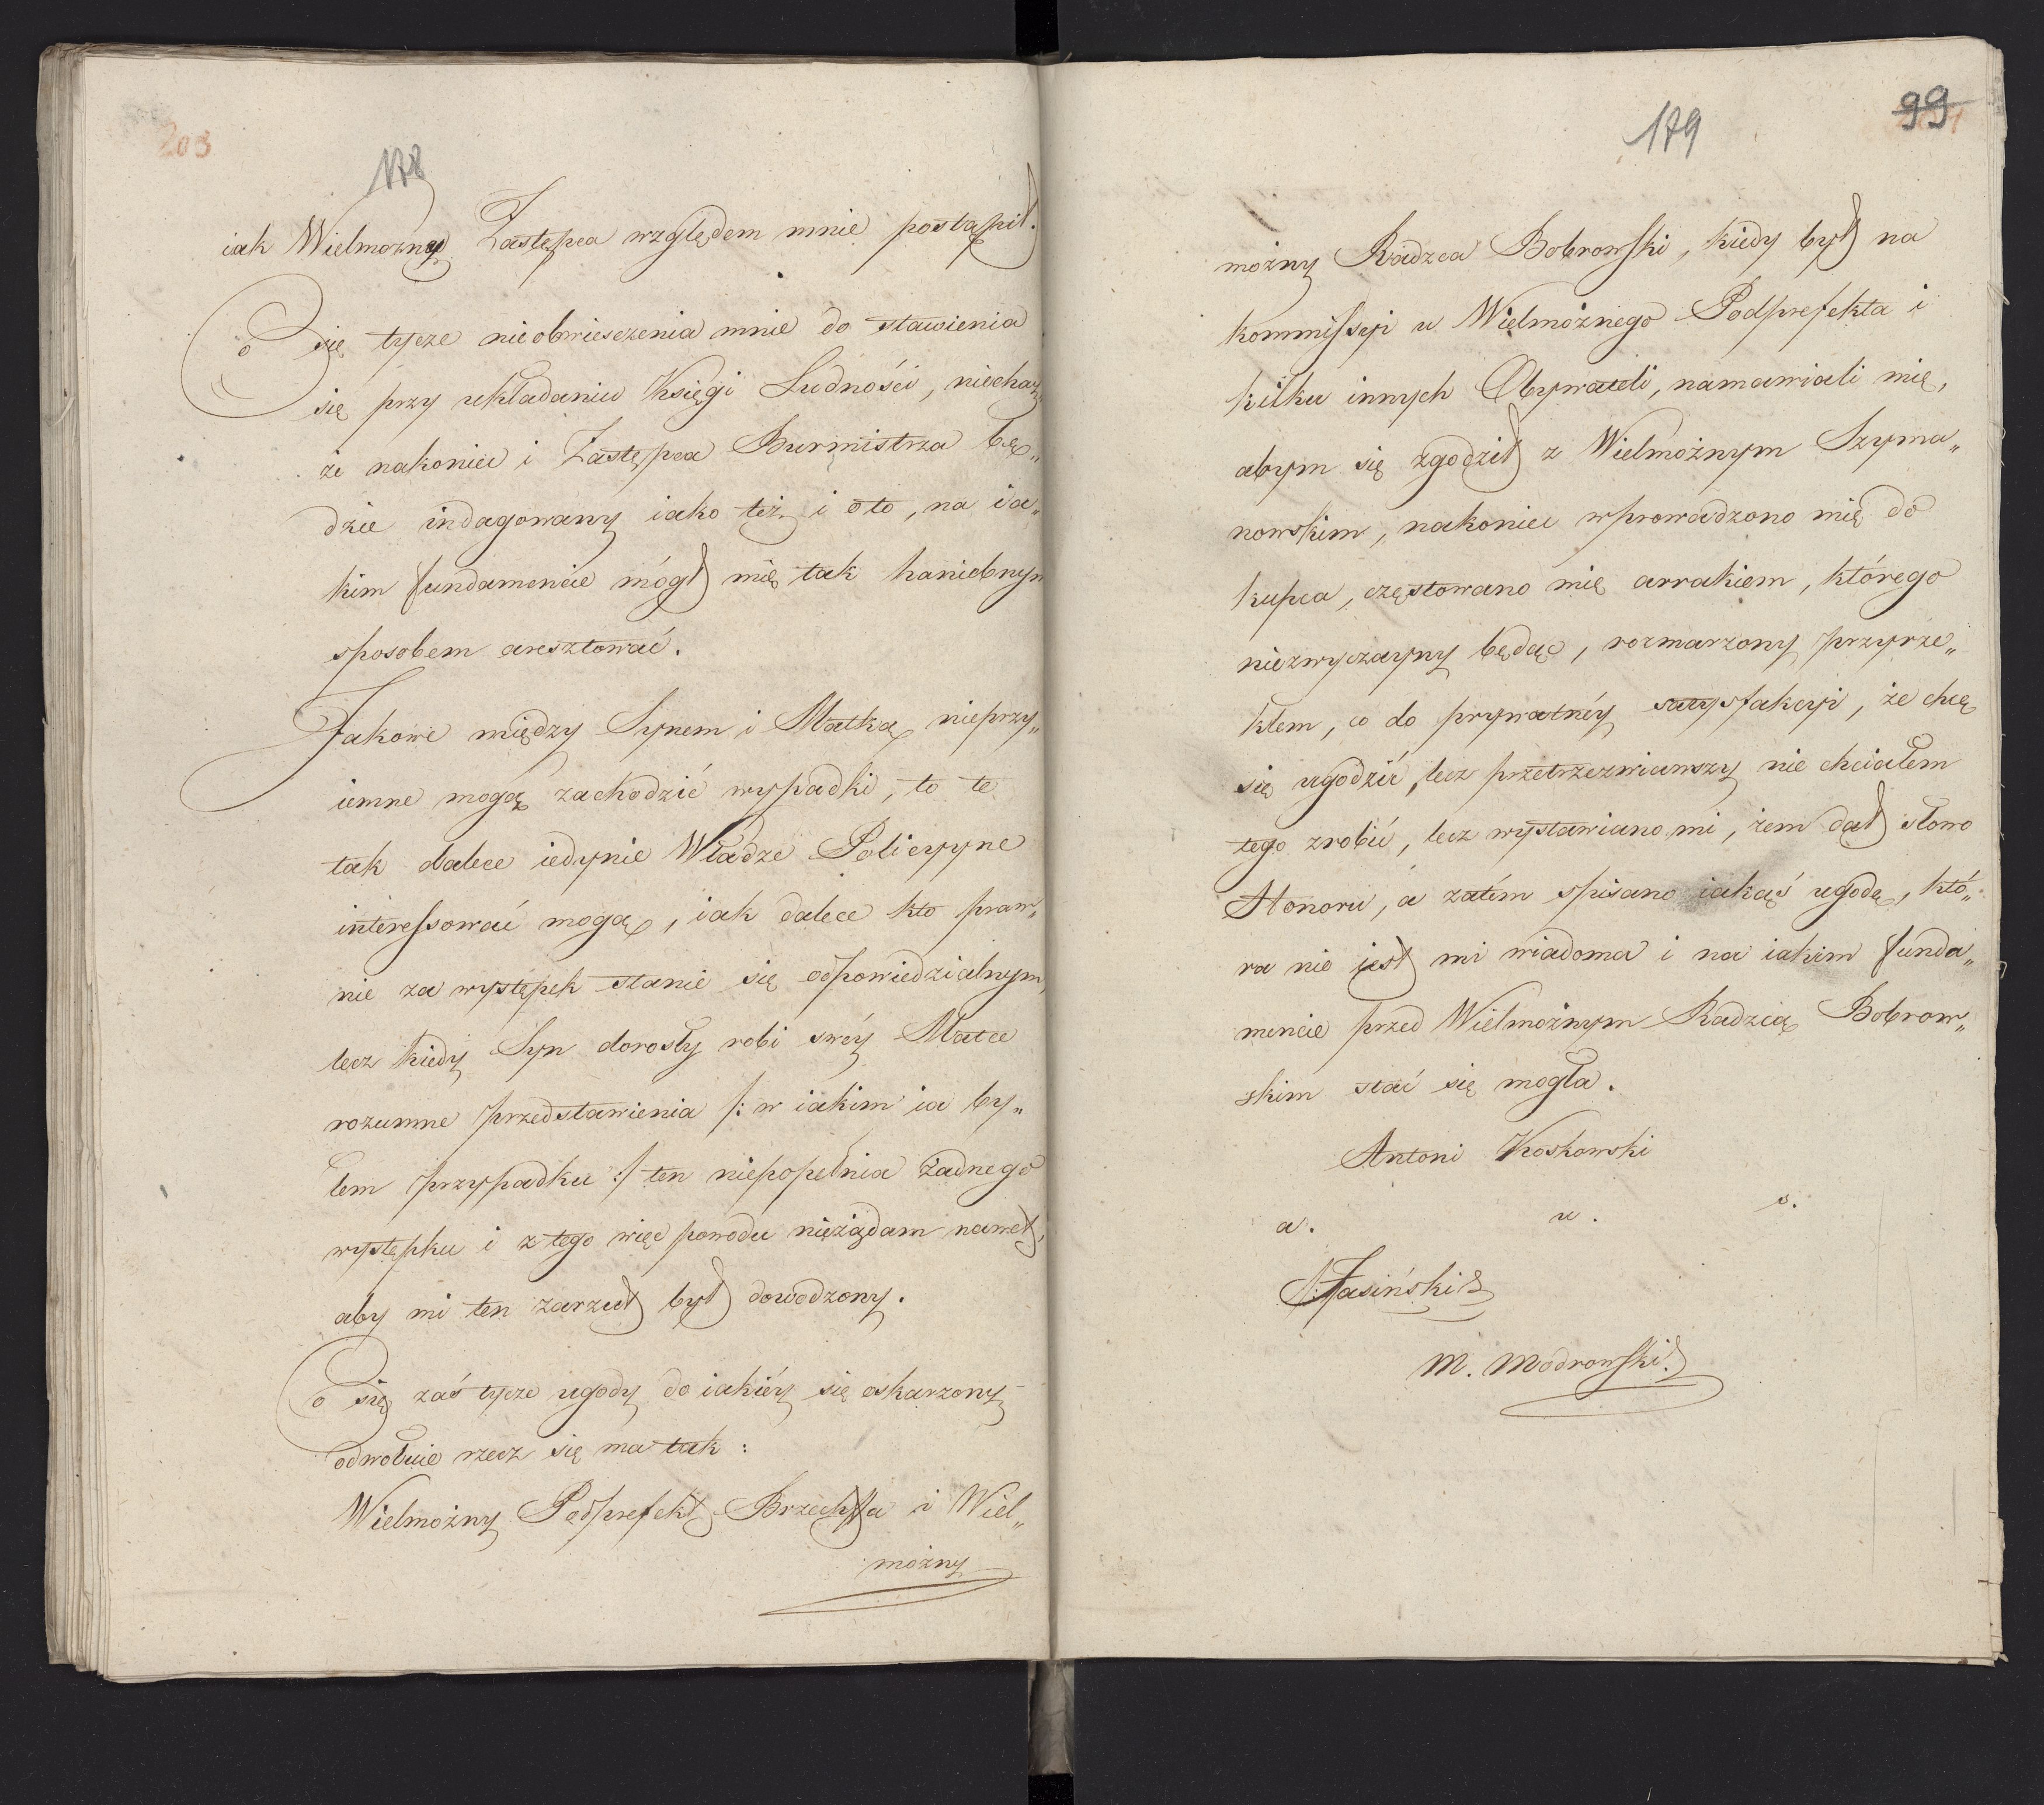 203
178
iak Wielmożny Zastępca względem mnie postąpił.
Co się tycze nieobwieszczenia mnie do stawienia
się przy układaniu Księgi Ludności, niechay
że nakoniec i Zastępca Burmistrza bę„
dzie indagowany iako też i o to, na ia„
kim fundamencie mógł mię tak haniebnym
sposobem aresztować.
Jakowe między Synem i Matką nieprzy„
iemne mogą zachodzić wypadki, to te
tak dalece iedynie Władze Policyyne
interessować mogą, iak dalece kto praw„
nie za występek stanie się odpowiedzialnym,
lecz kiedy Syn dorosły robi swéy Matce
rozumne przedstawienia /: w iakim ia by„
łem przypadku :/ ten niepopełnia żadnego
występku i z tego więc powodu nieżądam nawet,
aby mi ten zarzut był dowodzony.
Co się zaś tycze ugody do iakiéy się oskarzony
odwołuie rzecz się ma tak:
Wielmożny Podprefekt Brzechffa i Wiel„
możny
179
99
możny Radzca Bobrowski, kiedy był na
kommissyi u Wielmożnego Podprefekta i
kilku innych Obywateli, namawiali mię,
abym się zgodził z Wielmożnym Szyma„
nowskim, nakoniec wprowadzono mię do
kupca, częstowano mię arrakiem, którego
niezwyczayny będąc, rozmarzony przyrze„
kłem, co do prywatnéy satysfakcyi, że chcę
się ugodzić, lecz przetrzezwiawszy nie chciałem
tego zrobić, lecz wystawiano mi, żem dał słowo
Honoru, a zatém spisano iakąś ugodę, któ„
ra nie jest mi wiadoma i na iakim funda„
mencie przed Wielmożnym Radzcą Bobrow„
skim stać się mogła.
Antoni Koskowski
a. u. s.
Jasiński
M. Modrowski